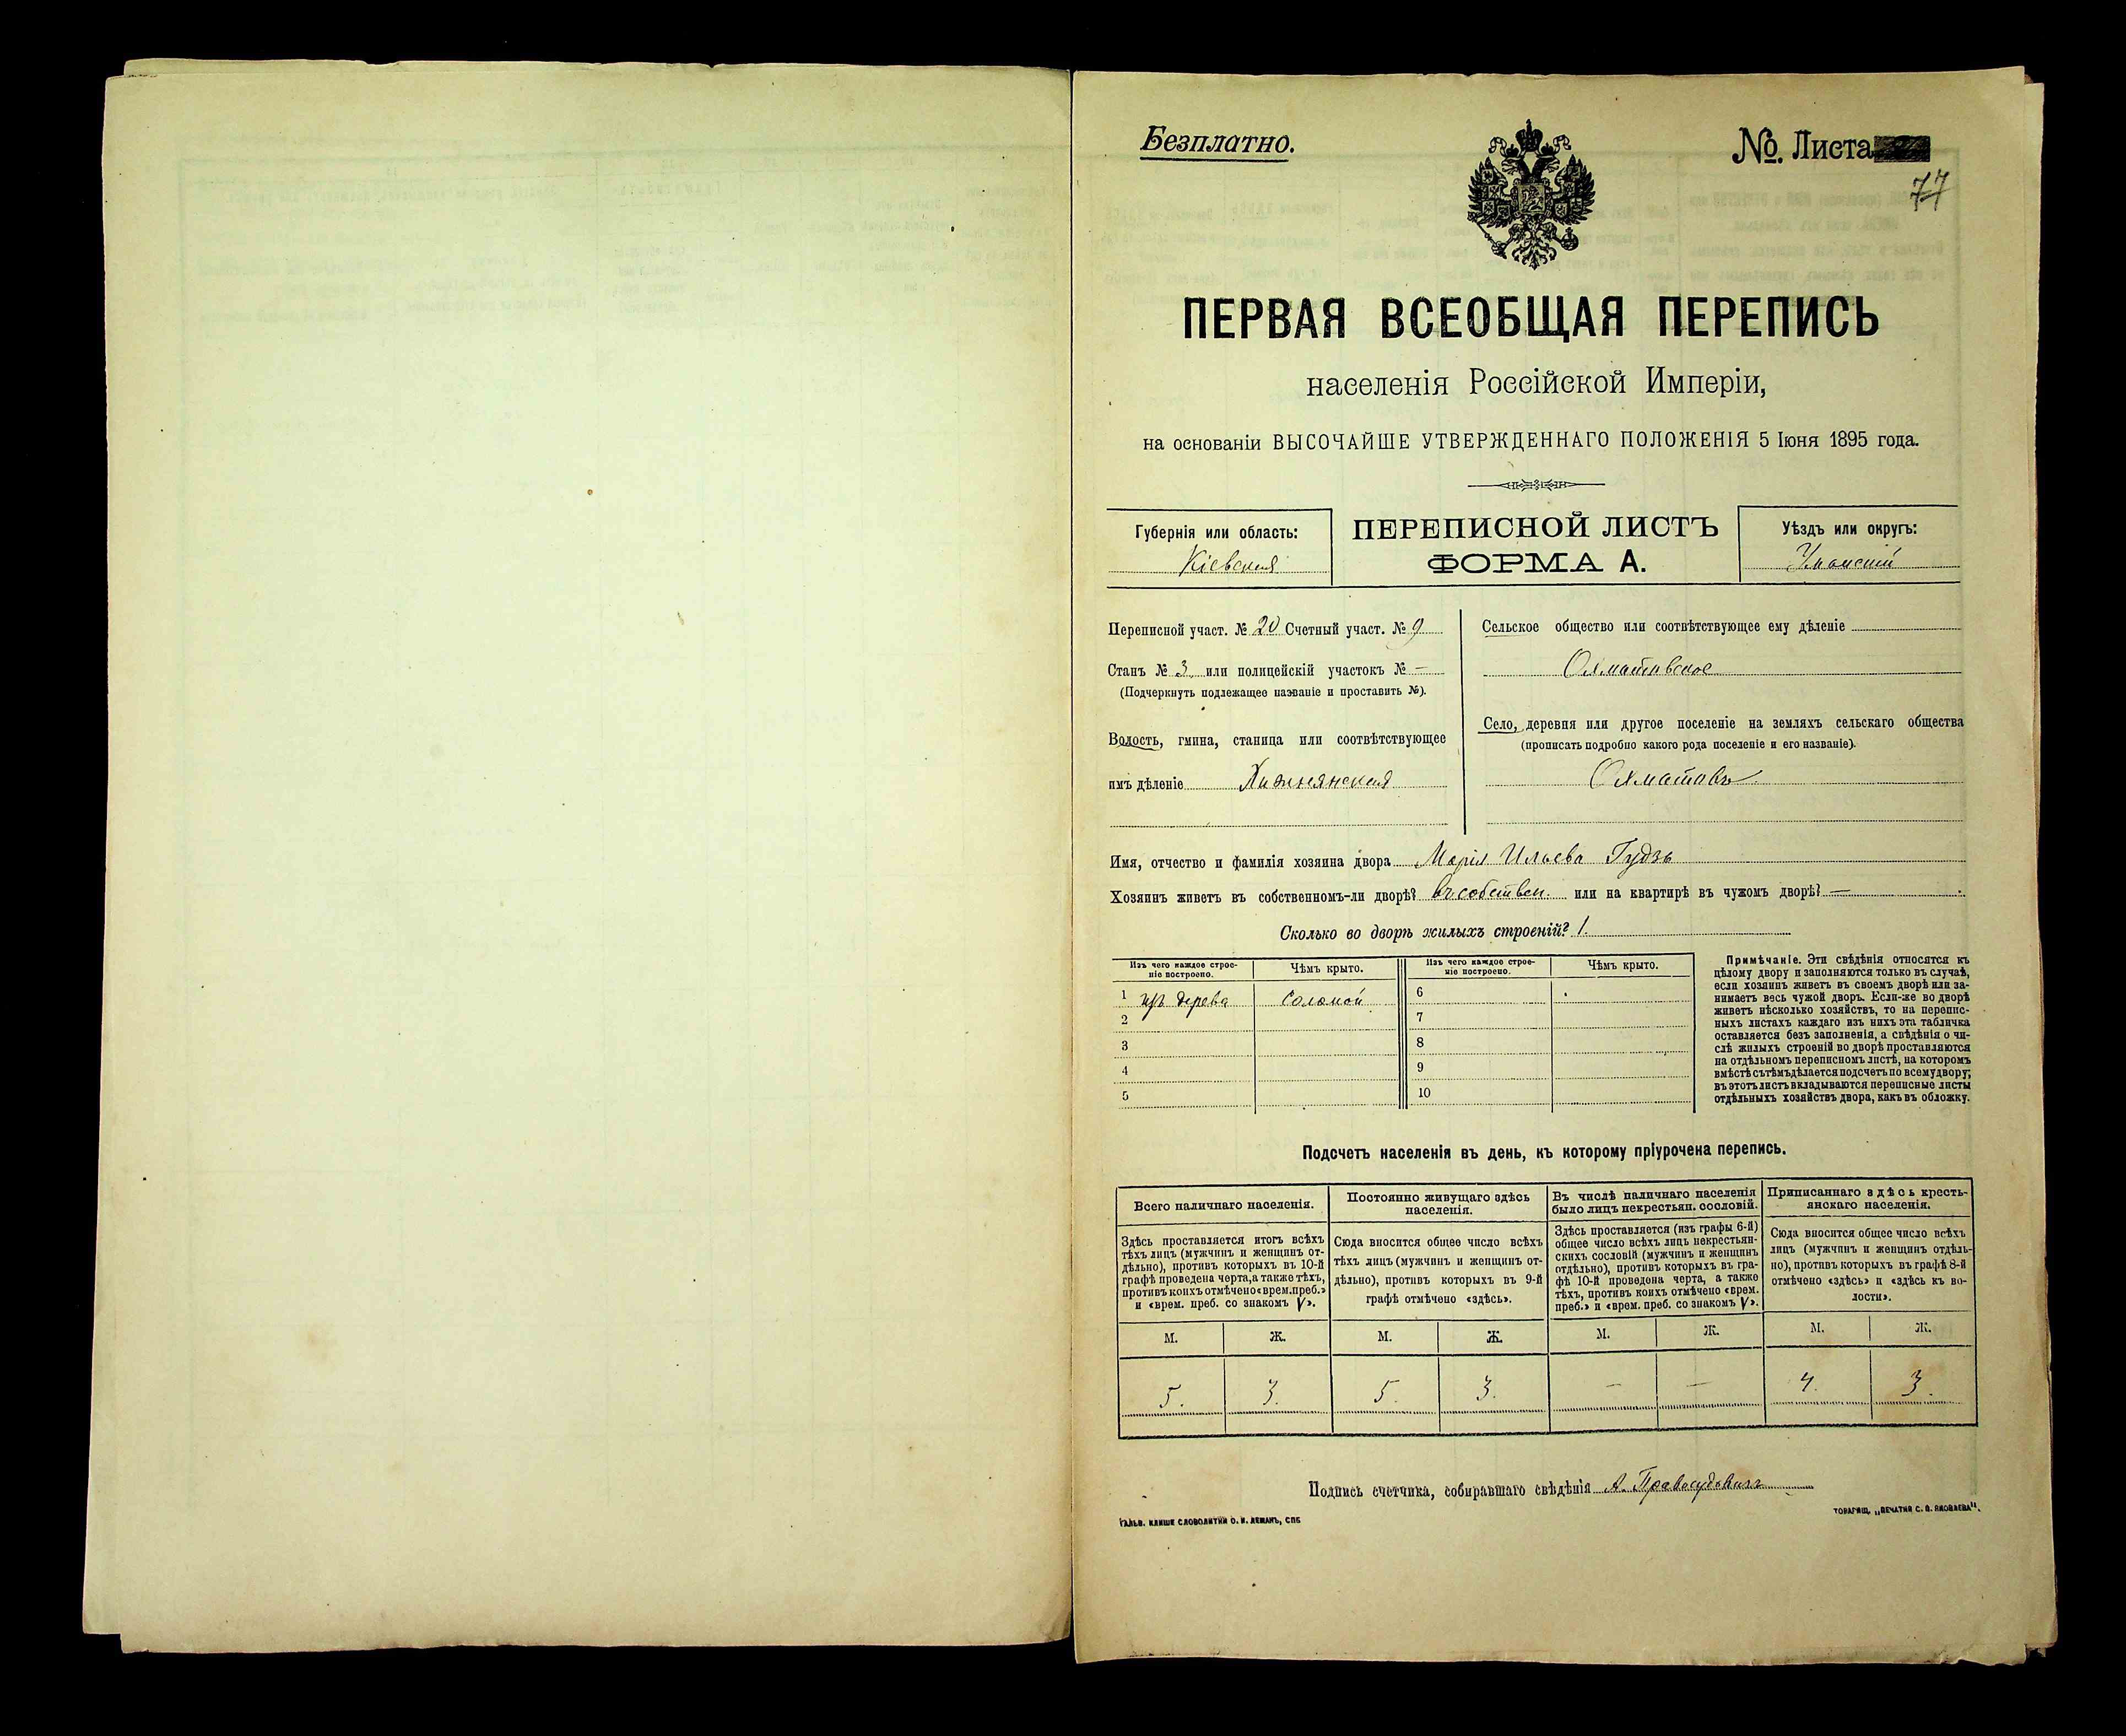 Безплатно.
№. Листа
77
ПЕРВАЯ ВСЕОБЩАЯ ПЕРЕПИСЬ
населенія Россійской Имперіи,
на основаніи ВЫСОЧАЙШЕ УТВЕРЖДЕННАГО ПОЛОЖЕНІЯ 5 Іюня 1895 года.
Губернія или область:
Кіевская
ПЕРЕПИСНОЙ ЛИСТЪ
ФОРМА А.
Уѣздъ или округъ:
Уманскій
Переписной участ. № 20 Счетный участ. № 9
Станъ № 3 или полицейскій участокъ № —
(Подчеркнуть подлежащее названіе и проставить №).
Волость, гмина, станица или соотвѣтствующее
имъ дѣленіе Хижнянская
Сельское общество или соотвѣтствующее ему дѣленіе
Охматовское
Село, деревня или другое поселеніе на земляхъ сельскаго общества
(прописать подробно какого рода поселеніе и его названіе).
Охматовъ
Имя, отчество и фамилія хозяина двора Марія Ильева Гудзь
Хозяинъ живетъ въ собственномъ-ли дворѣ? въ собствен. или на квартирѣ въ чужомъ дворѣ? —
Сколько во дворѣ жилыхъ строеній? 1.
Изъ чего каждое строе-
ніе построено.
Чѣмъ крыто.
1 изъ дерева соломой
2
3
4
5
Изъ чего каждое строе-
ніе построено.
Чѣмъ крыто.
6
7
8
9
10
Примѣчаніе. Эти свѣдѣнія относятся къ
цѣлому двору и заполняются только въ случаѣ,
если хозяинъ живетъ въ своемъ дворѣ или за-
нимаетъ весь чужой дворъ. Если-же во дворѣ
живетъ нѣсколько хозяйствъ, то на перепис-
ныхъ листахъ каждаго изъ нихъ эта табличка
оставляется безъ заполненія, а свѣдѣнія о чи-
слѣ жилыхъ строеній во дворѣ проставляются
на отдѣльномъ переписномъ листѣ, на которомъ
вмѣстѣ съ тѣмъ дѣлается подсчетъ по всему двору;
въ этотъ листъ вкладываются переписные листы
отдѣльныхъ хозяйствъ двора, какъ въ обложку.
Подсчетъ населенія въ день, къ которому пріурочена перепись.
Всего наличнаго населенія.
Здѣсь проставляется итогъ всѣхъ
тѣхъ лицъ (мужчинъ и женщинъ от-
дѣльно), противъ которыхъ въ 10-й
графѣ проведена черта, а также тѣхъ,
противъ коихъ отмѣчено «врем. преб.»
и «врем. преб. со знакомъ V».
М. Ж.
5. 3.
Постоянно живущаго здѣсь
населенія.
Сюда вносится общее число всѣхъ
тѣхъ лицъ (мужчинъ и женщинъ от-
дѣльно), противъ которыхъ въ 9-й
графѣ отмѣчено «здѣсь».
М. Ж.
5. 3.
Въ числѣ наличнаго населенія
было лицъ некрестьян. сословій.
Здѣсь проставляется (изъ графы 6-й)
общее число всѣхъ лицъ некрестьян-
скихъ сословій (мужчинъ и женщинъ
отдѣльно), противъ которыхъ въ гра-
фѣ 10-й проведена черта, а также
тѣхъ, противъ коихъ отмѣчено «врем.
преб.» и «врем. преб. со знакомъ V».
М. Ж.
— —
Приписаннаго здѣсь кресть-
янскаго населенія.
Сюда вносится общее число всѣхъ
лицъ (мужчинъ и женщинъ отдѣль-
но), противъ которыхъ въ графѣ 8-й
отмѣчено «здѣсь» и «здѣсь къ во-
лости».
М. Ж.
4. 3.
Подпись счетчика, собиравшаго свѣдѣнія А. Правосудовичъ
ГАЛЬВ. КЛИШЕ СЛОВОЛИТНИ О. И. ЛЕМАНЪ, СПБ
ТОВАРИЩ. „ПЕЧАТНЯ С. П. ЯКОВЛЕВА".